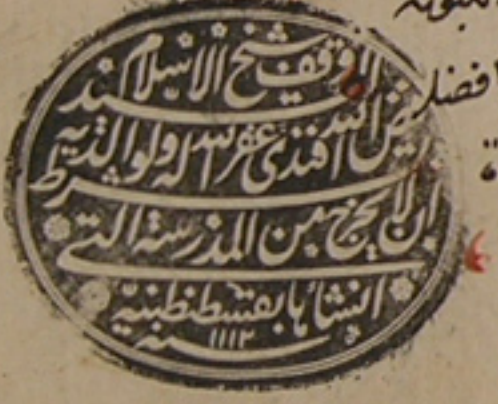 وقف شيخ الاسلام السيد
فيض الله افندى غفر الله له ولوالديه
بشرط ان لا يخرج من المدرسة التى
انشاها بقسطنطنيّة
سنه ١١١٢